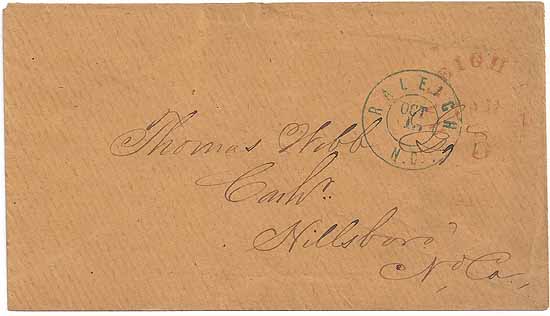 RALEIGH
OCT
N.C.
EIGH
Thomas Webb Esq
Cashr.
Hillsboro'
No. Ca.,